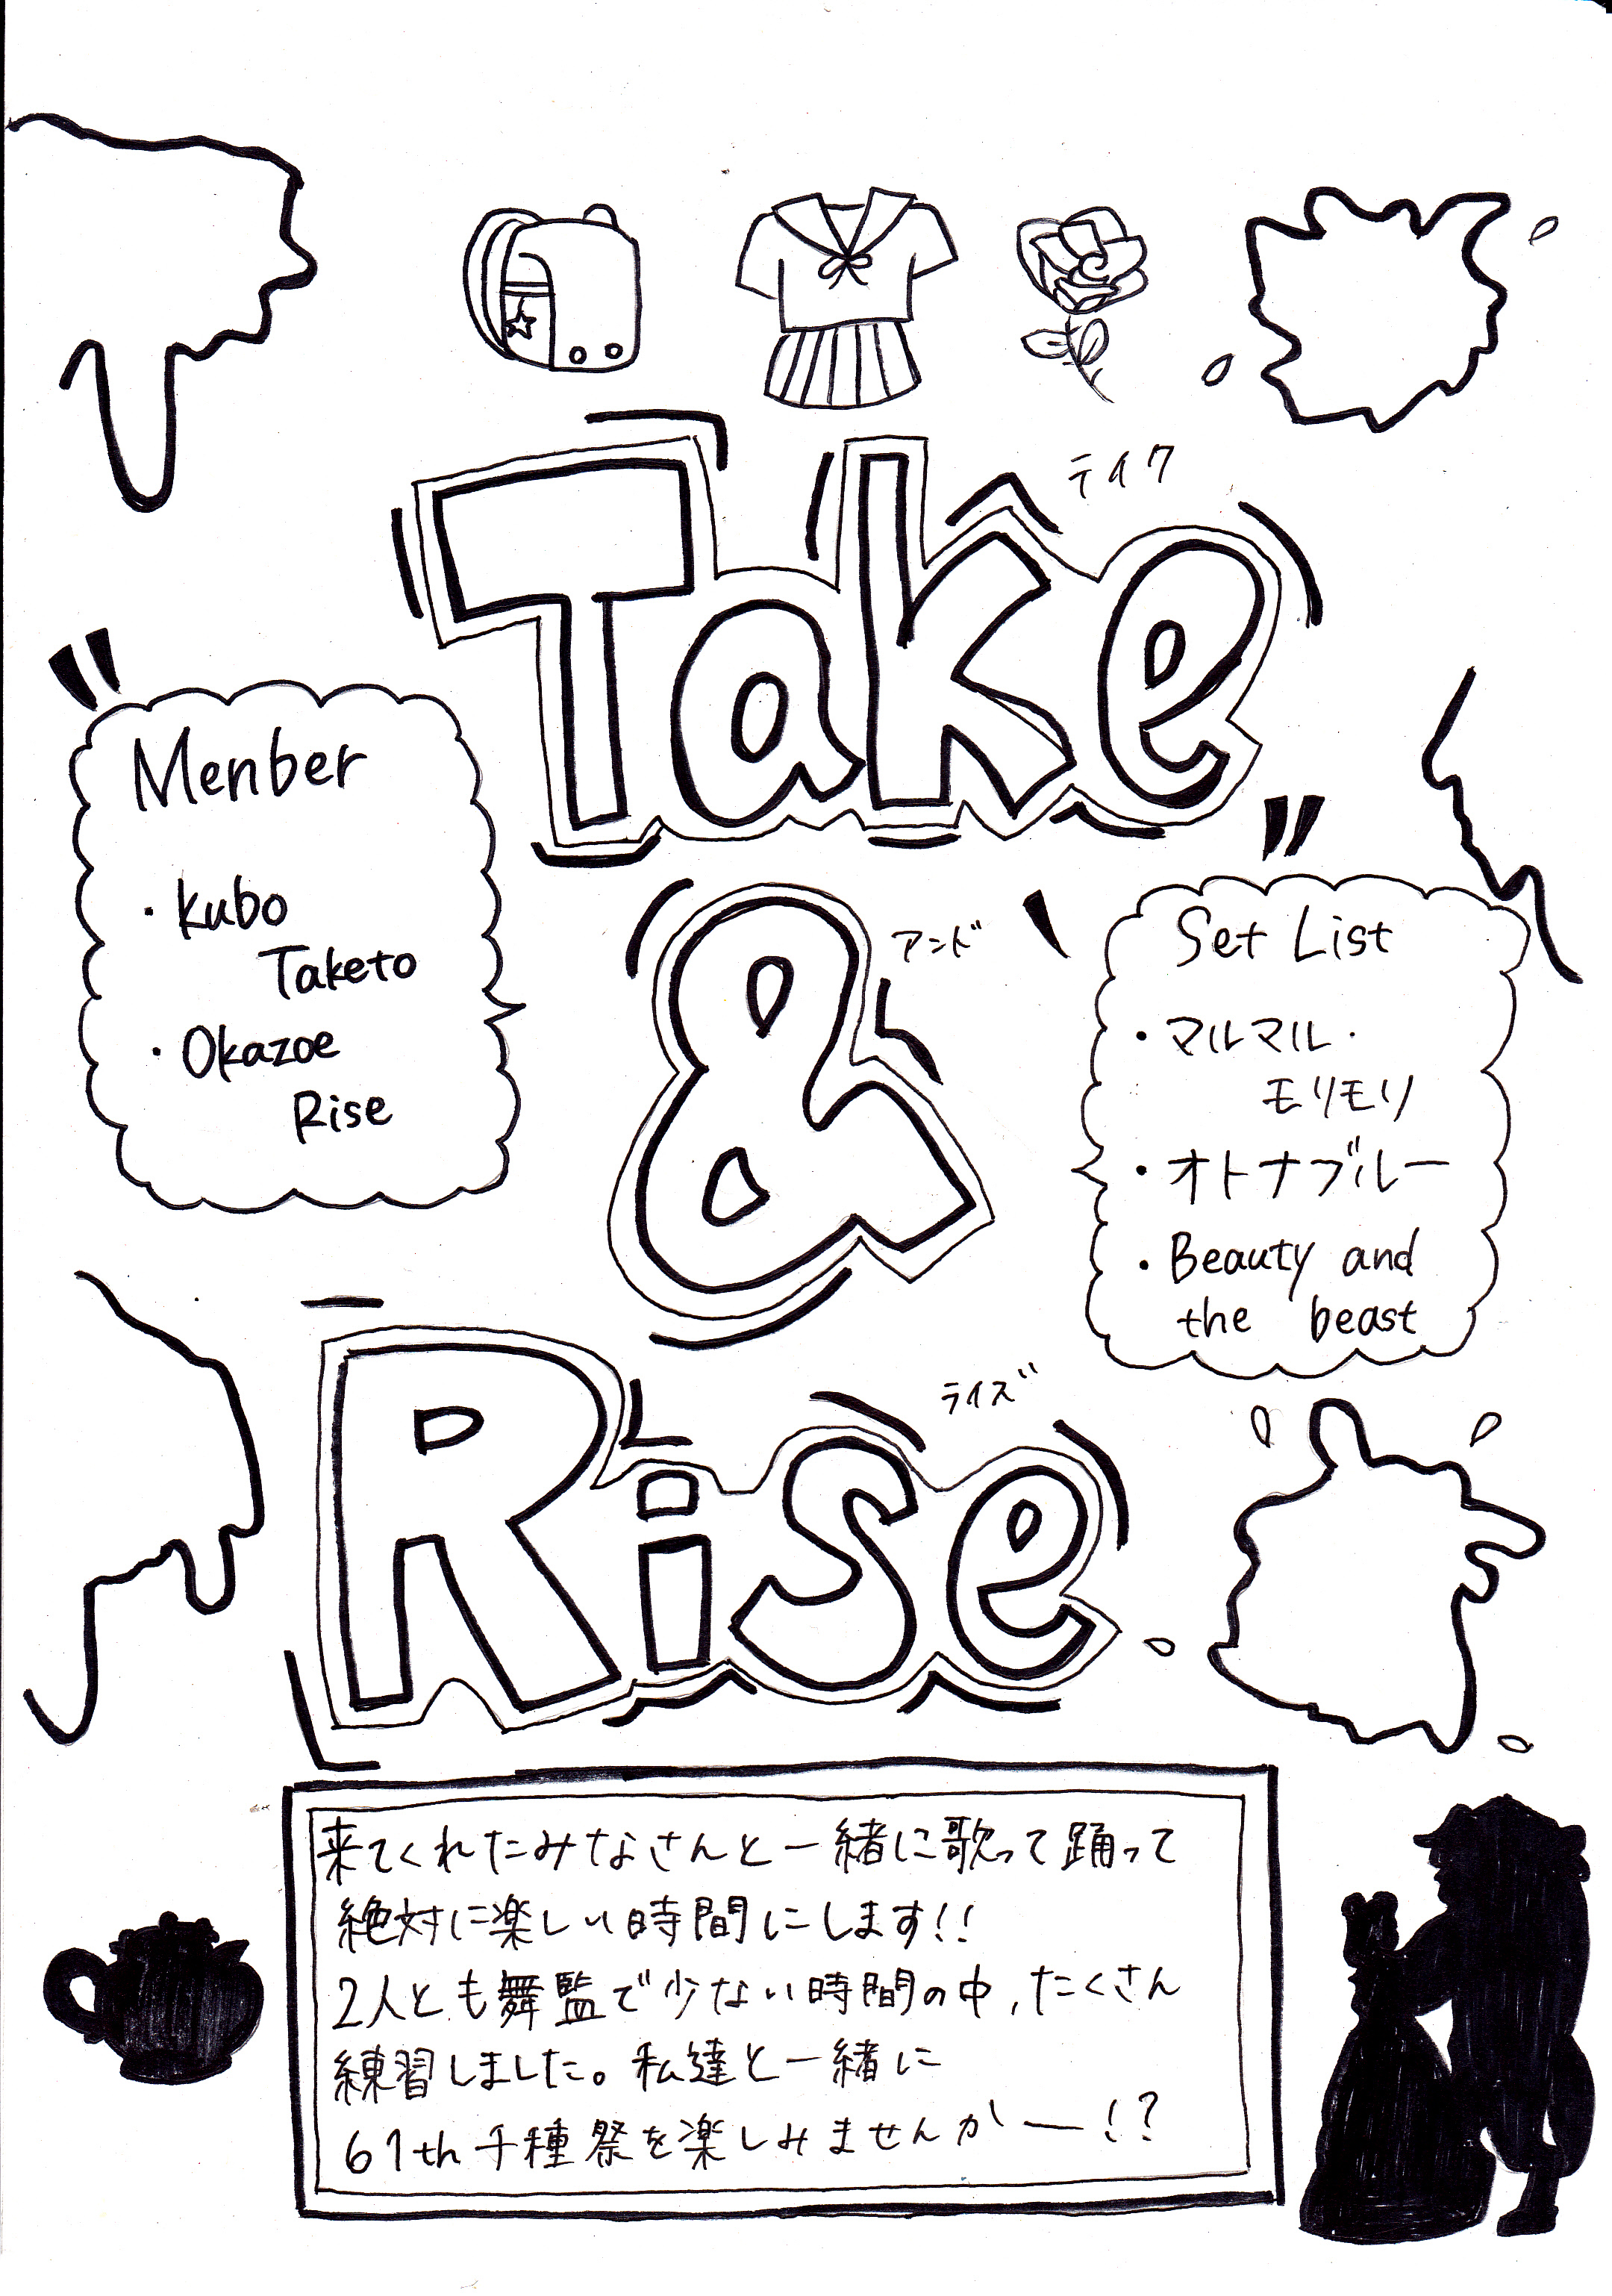 Take
テイク
&
アンド
Rise
ライズ
Menber
・Kubo
Taketo
・Okazoe
Rise
Set List
・マルマル・
モリモリ
・オトナブルー
・Beauty and
the beast
来てくれたみなさんと一緒に歌って踊って
絶対に楽しい時間にします!!
2人とも舞監で少ない時間の中,たくさん
練習しました。私達と一緒に
61th千種祭を楽しみませんかー!?